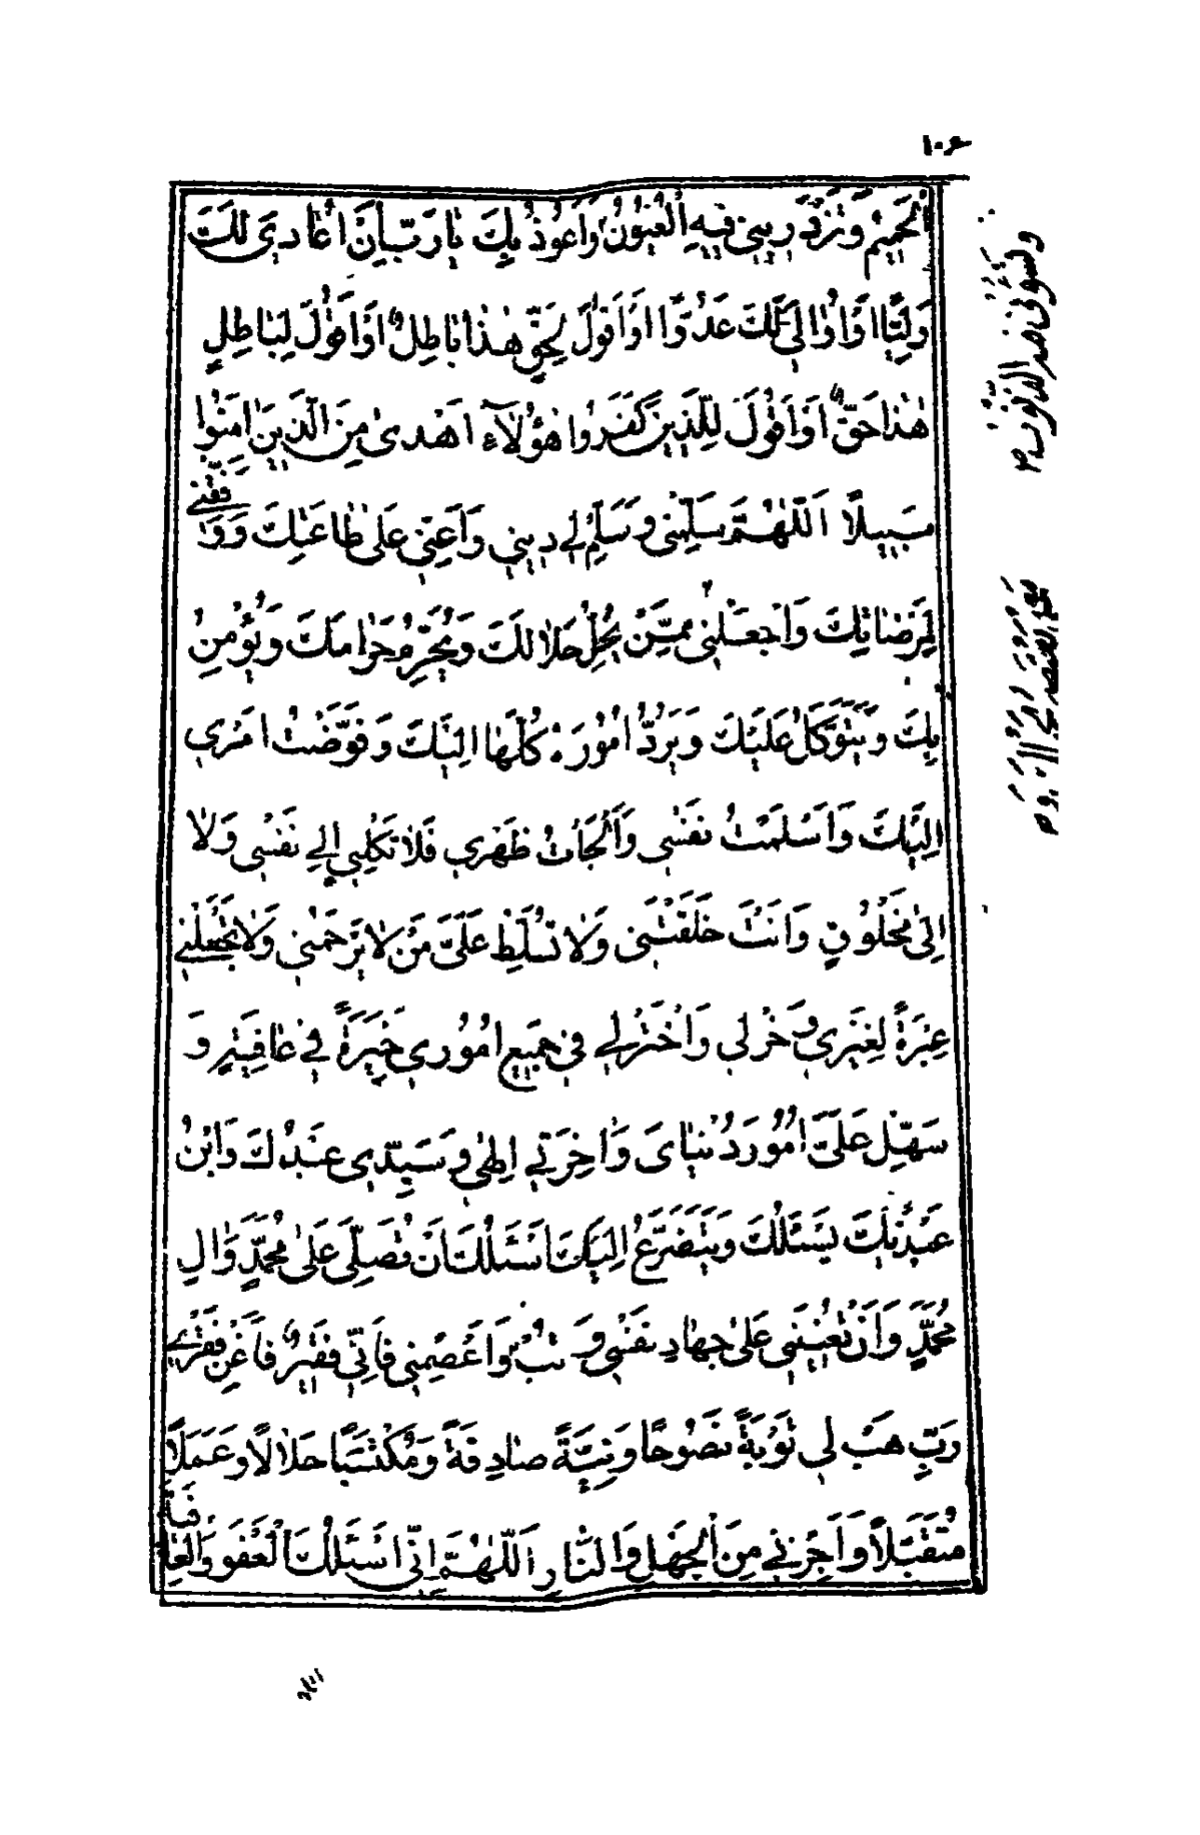 ١٠٦
الْحَمِيمُ وَتَزْدَرِيني فيهِ الْعُيُونُ وَاَعُوذُ بِكَ يا رَبِّ اَنْ اُعادِيَ لَكَ
وَلِيًّا اَوْ اُوالِيَ لَكَ عَدُوًّا اَوْ اَقُولَ لِحَقٍّ هٰذا باطِلٌ اَوْ اَقُولَ لِباطِلٍ
هٰذا حَقٌّ اَوْ اَقُولَ لِلَّذينَ كَفَرُوا هٰؤُلآءِ اَهْدىٰ مِنَ الَّذينَ اٰمَنُوا
سَبيلاً اَللّٰهُمَّ سَلِّمْني وَسَلِّمْ لي ديني وَاَعِنّي عَلىٰ طاعَتِكَ وَوَفِّقْني
لِمَرْضاتِكَ وَاجْعَلْني مِمَّنْ يُحِلُّ حَلالَكَ وَيُحَرِّمُ حَرامَكَ وَيُؤْمِنُ
بِكَ وَيَتَوَكَّلُ عَلَيْكَ وَيَرُدُّ اُمُورَهُ كُلَّها اِلَيْكَ وَفَوَّضْتُ اَمْري
اِلَيْكَ وَاَسْلَمْتُ نَفْسي وَاَلْجَأْتُ ظَهْري فَلا تَكِلْني اِلىٰ نَفْسي وَلا
اِلىٰ مَخْلُوقٍ وَاَنْتَ خَلَقْتَني وَلا تُسَلِّطْ عَلَيَّ مَنْ لا يَرْحَمُني وَلا تَجْعَلْني
عِبْرَةً لِغَيْري وَخِرْ لي وَاخْتَرْ لي في جَميعِ اُمُوري خِيَرَةً في عافِيَةٍ وَ
سَهِّلْ عَلَيَّ اُمُورَ دُنْيايَ وَاٰخِرَتي اِلٰهي وَسَيِّدي عَبْدُكَ وَابْنُ
عَبْدَيْكَ يَسْئَلُكَ وَيَتَضَرَّعُ اِلَيْكَ اَسْئَلُكَ اَنْ تُصَلِّيَ عَلىٰ مُحَمَّدٍ وَاٰلِ
مُحَمَّدٍ وَاَنْ تُعينَني عَلىٰ جِهادِ نَفْسي وَ تُبْ وَاعْصِمْني فَاِنّي فَقيرٌ فَاَغْنِ فَقْري
رَبِّ هَبْ لي تَوْبَةً نَصُوحًا وَنِيَّةً صادِقَةً وَمُكْتَسَبًا حَلالاً وَعَمَلاً
مُتَقَبَّلاً وَاَجِرْني مِنَ الْجَهْلِ وَالنّارِ اَللّٰهُمَّ اِنّي اَسْئَلُكَ الْعَفْوَ وَالْعافِيَةَ